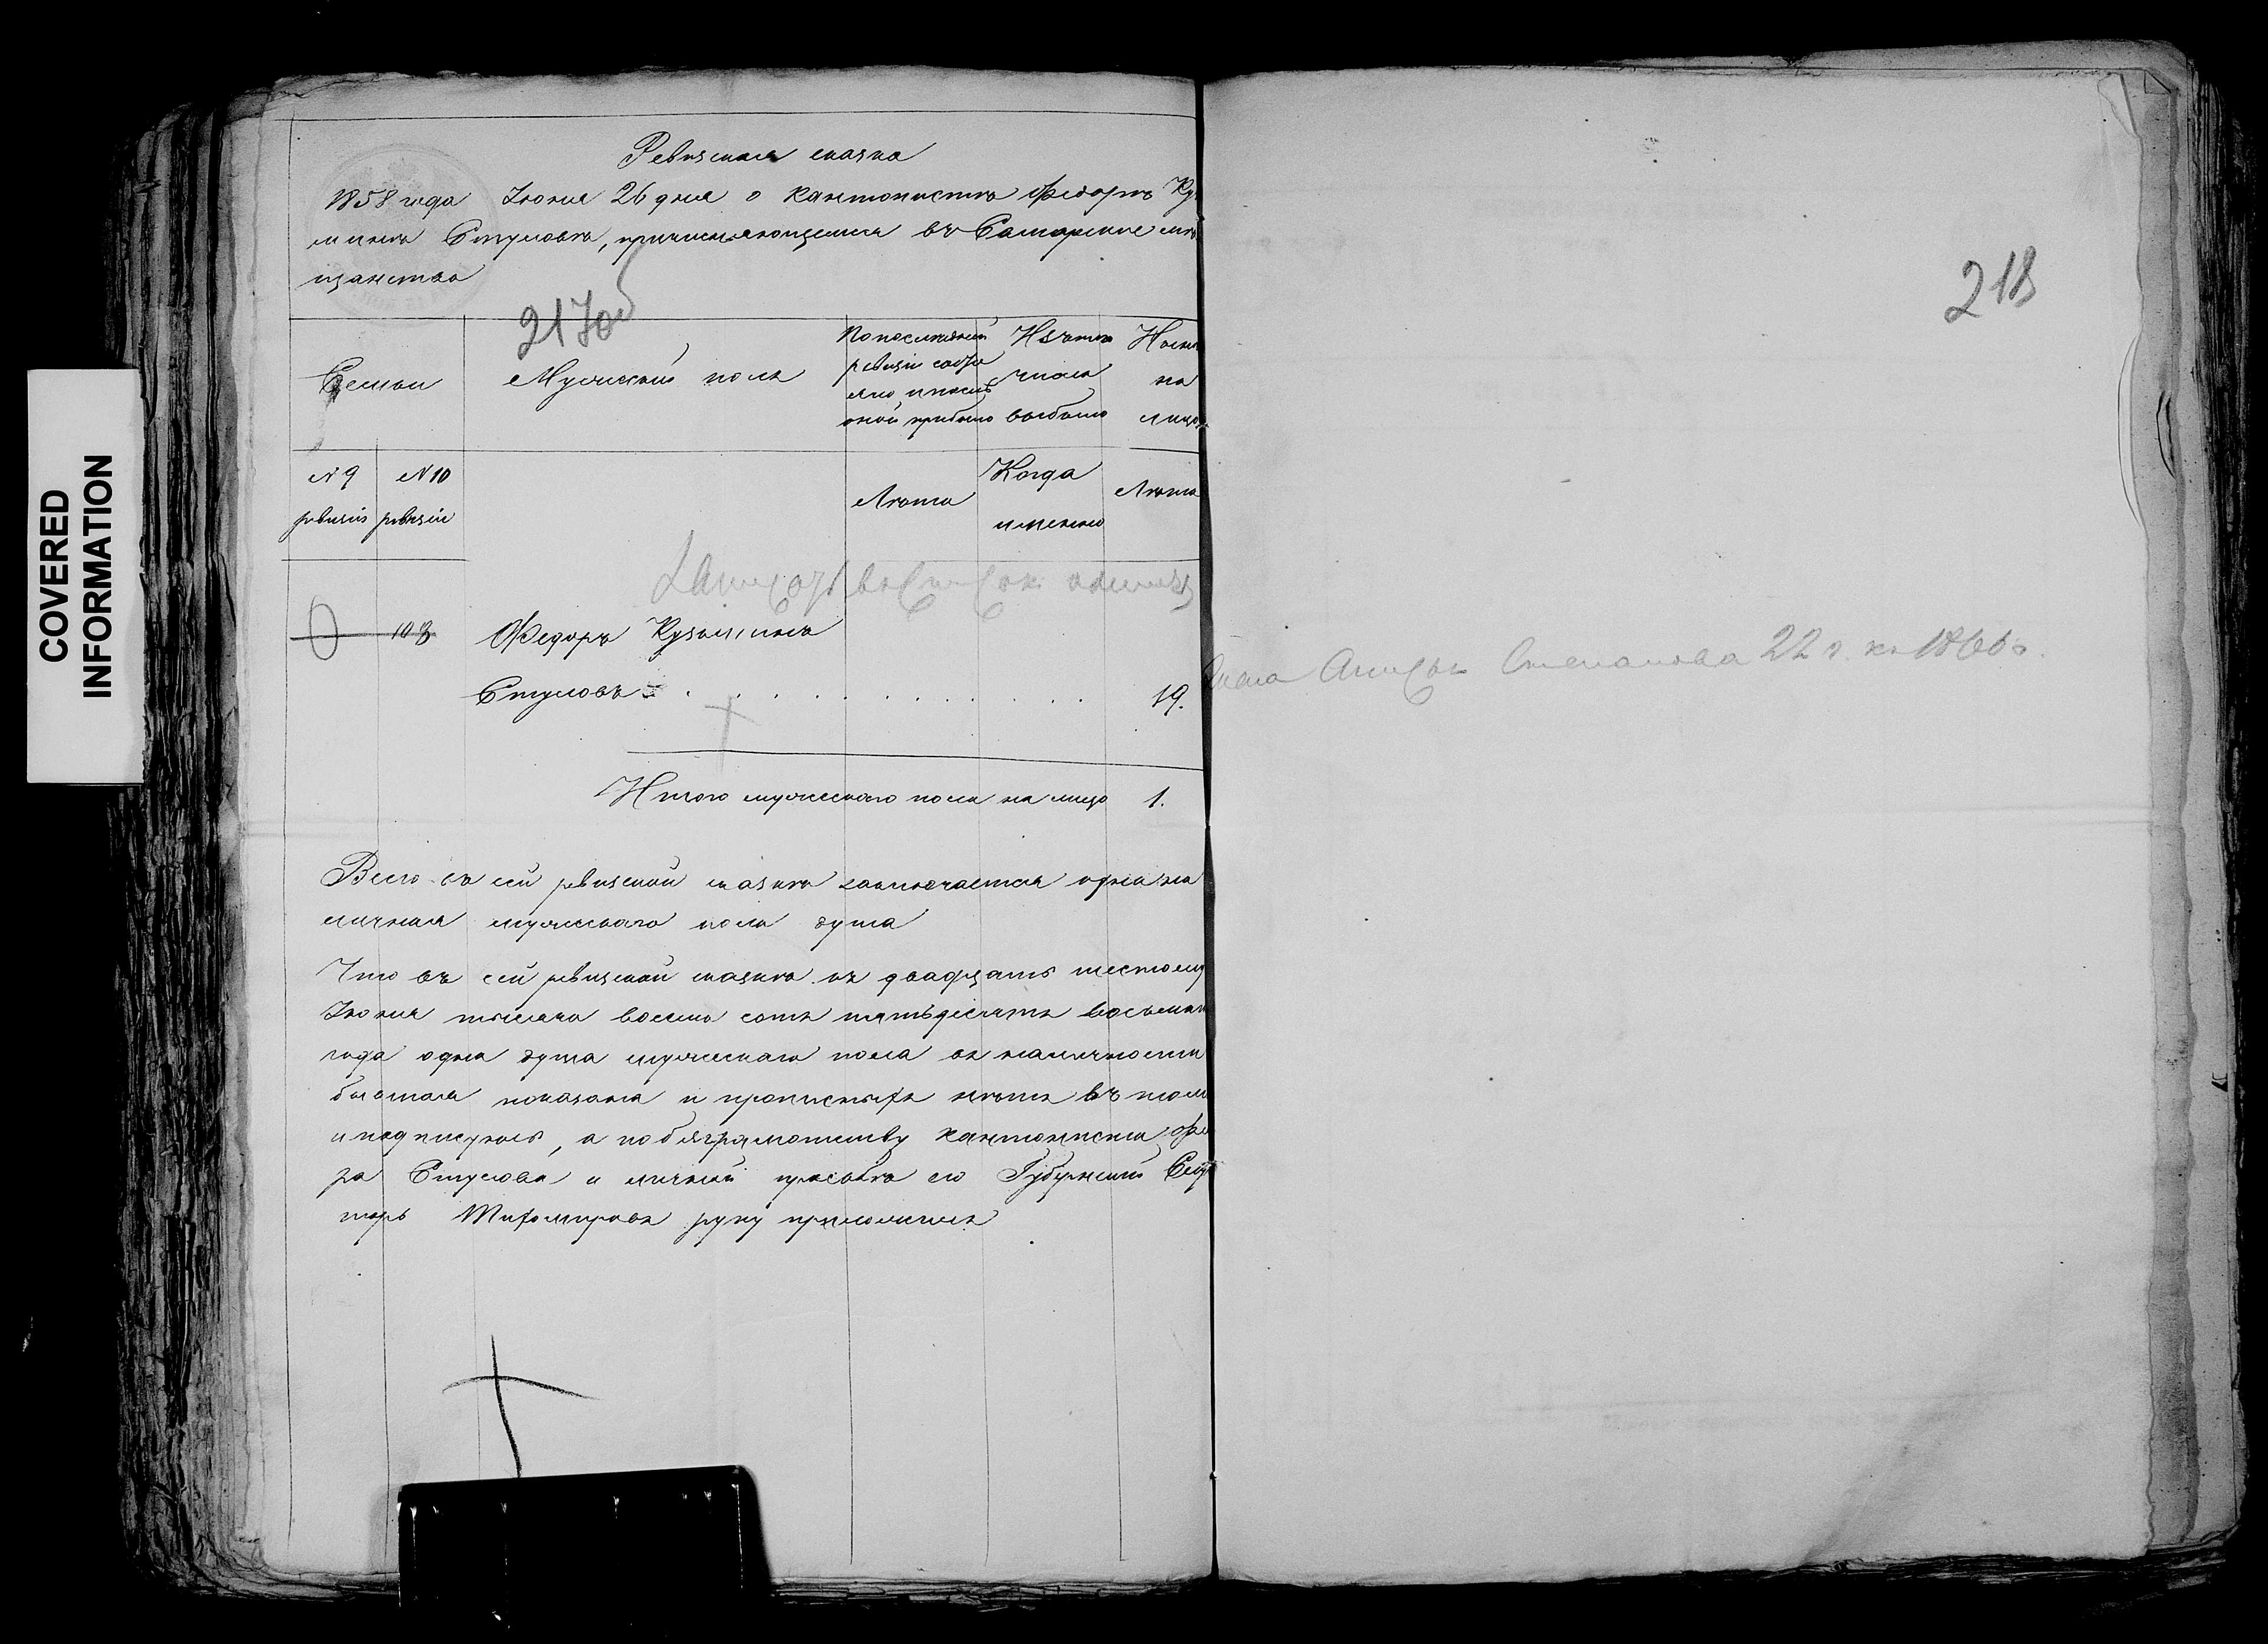 COVERED
INFORMATION
Ревизская сказка
1858 года Іюня 26 дня о кантонистѣ Ѳедорѣ Ку
минѣ Стуловѣ, причисляющемся въ Самарские мѣ
щанство
217об
Семьи
Мужескій полъ
По последней
ревизіи состо
яло и послѣ
оной прибыло
Изъ того
числа
выбыло
Ныне
на
лицо
№ 9
ревизіи
№ 10
ревизіи
Лѣта
Когда
именно
Лѣта
103 Федоръ Кузьминъ
Стуловъ 19.
Итого мужескаго пола на лицо 1.
Всего въ сей ревизской сказкѣ заключается одна на
личная мужескаго пола душа
Что въ сей ревизской сказкѣ къ двадцать шестому
Іюня тысяча восемь сотъ пятьдесятъ восьмаго
года одна душа мужескаго пола въ наличности
бытая показана и прописныхъ нѣтъ въ томъ
и подпишусь, а по безграмотству кантониста Ѳедо
ра Стулова и личной прозьбѣ его Губернскій Секре
тарь Тихомировъ руку приложилъ
218
Жена Степанова 22 л. къ 1866 г.